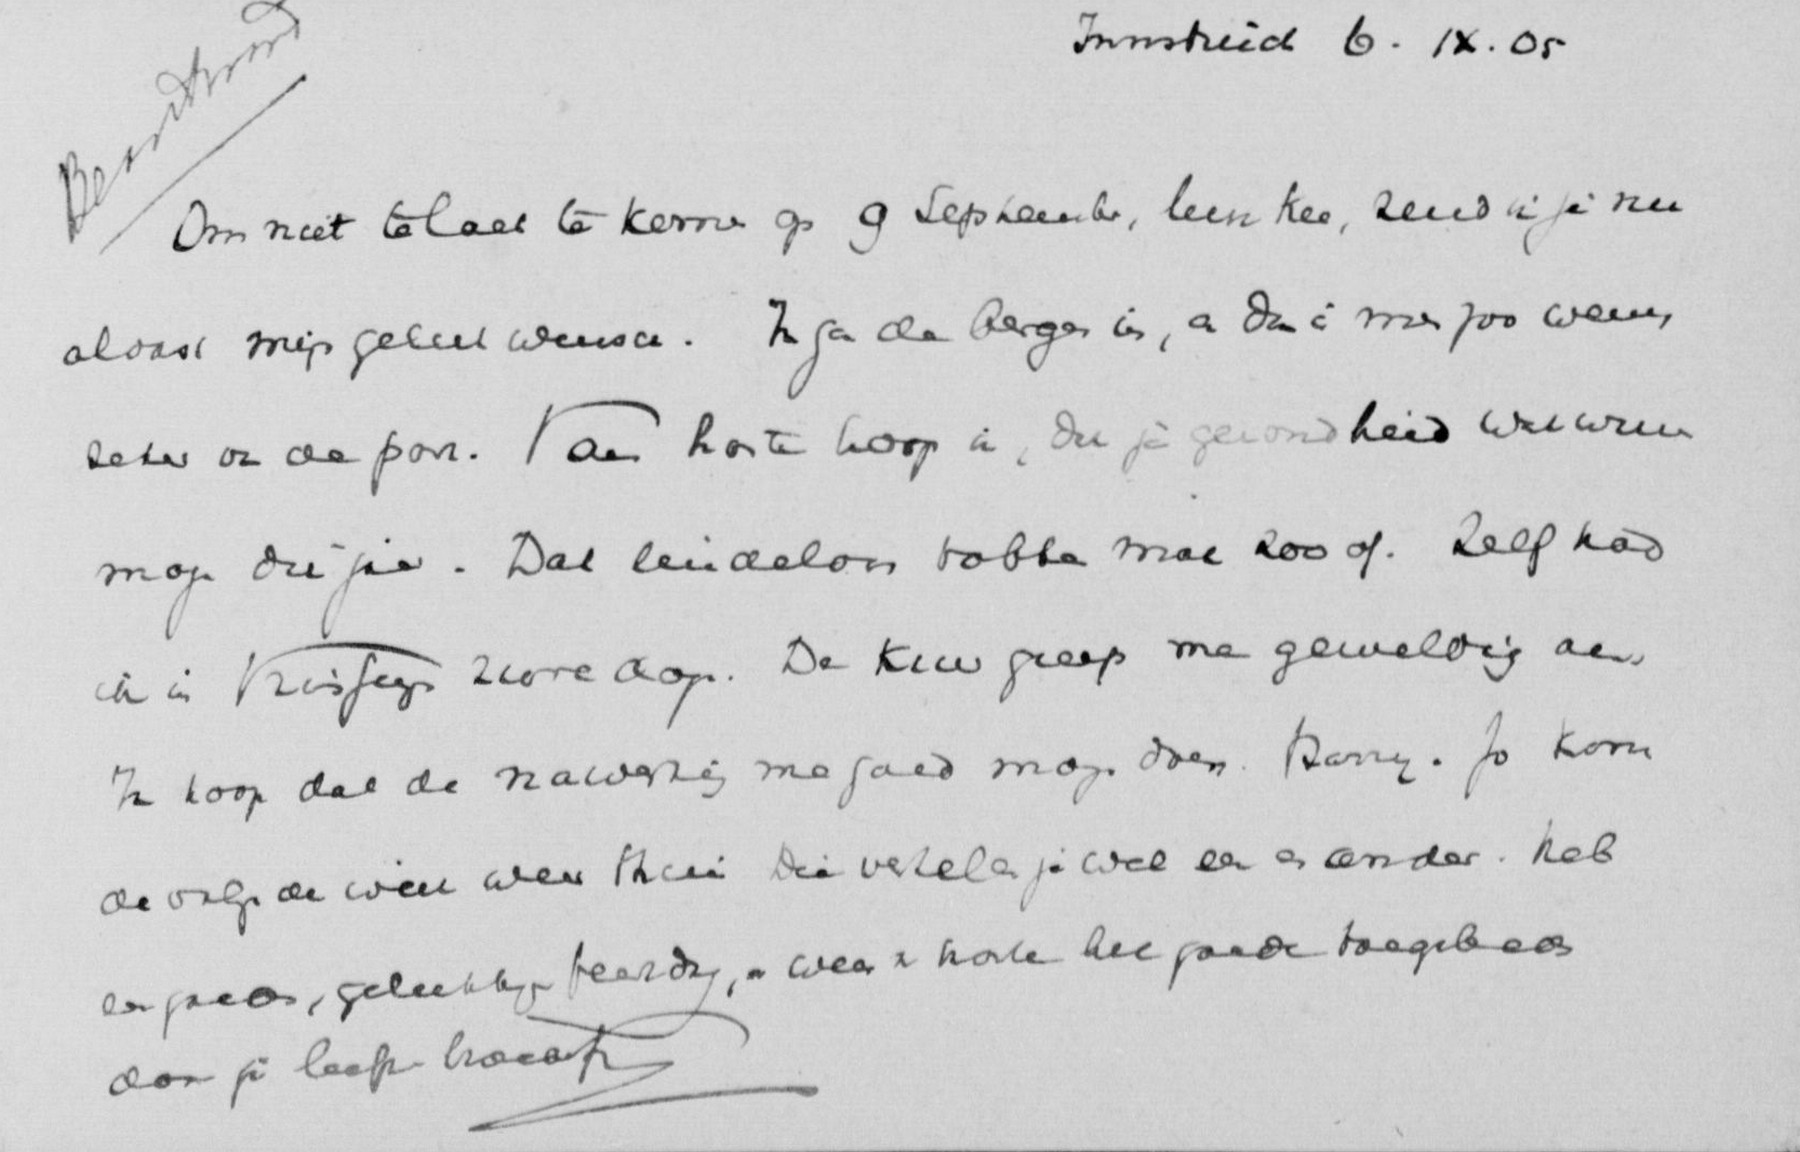 Beantwoord
Innsbruck 6. IX. 05
Om niet te laat te komen op 9 September, lieve Kee, zend ik je nu
alvast mijn gelukwensch. Ik ga de bergen in, en dan is men zoo weinig
zeker van de post. Van harte hoop ik, dat je gezondheid
mag dit jaar. Dat eindeloos tobben mat zoo af. Zelf had
ik in zware dagen. De kuur greep me geweldig aan.
Ik hoop dat de nawerking me goed mag doen. Harry. Jo kom
de volgende week weer thuis Die vertellen je wel een en ander. Heb
een goeden, gelukkigen feestdag, en wees van harte het goede toegebeden
door je liefh. broeder